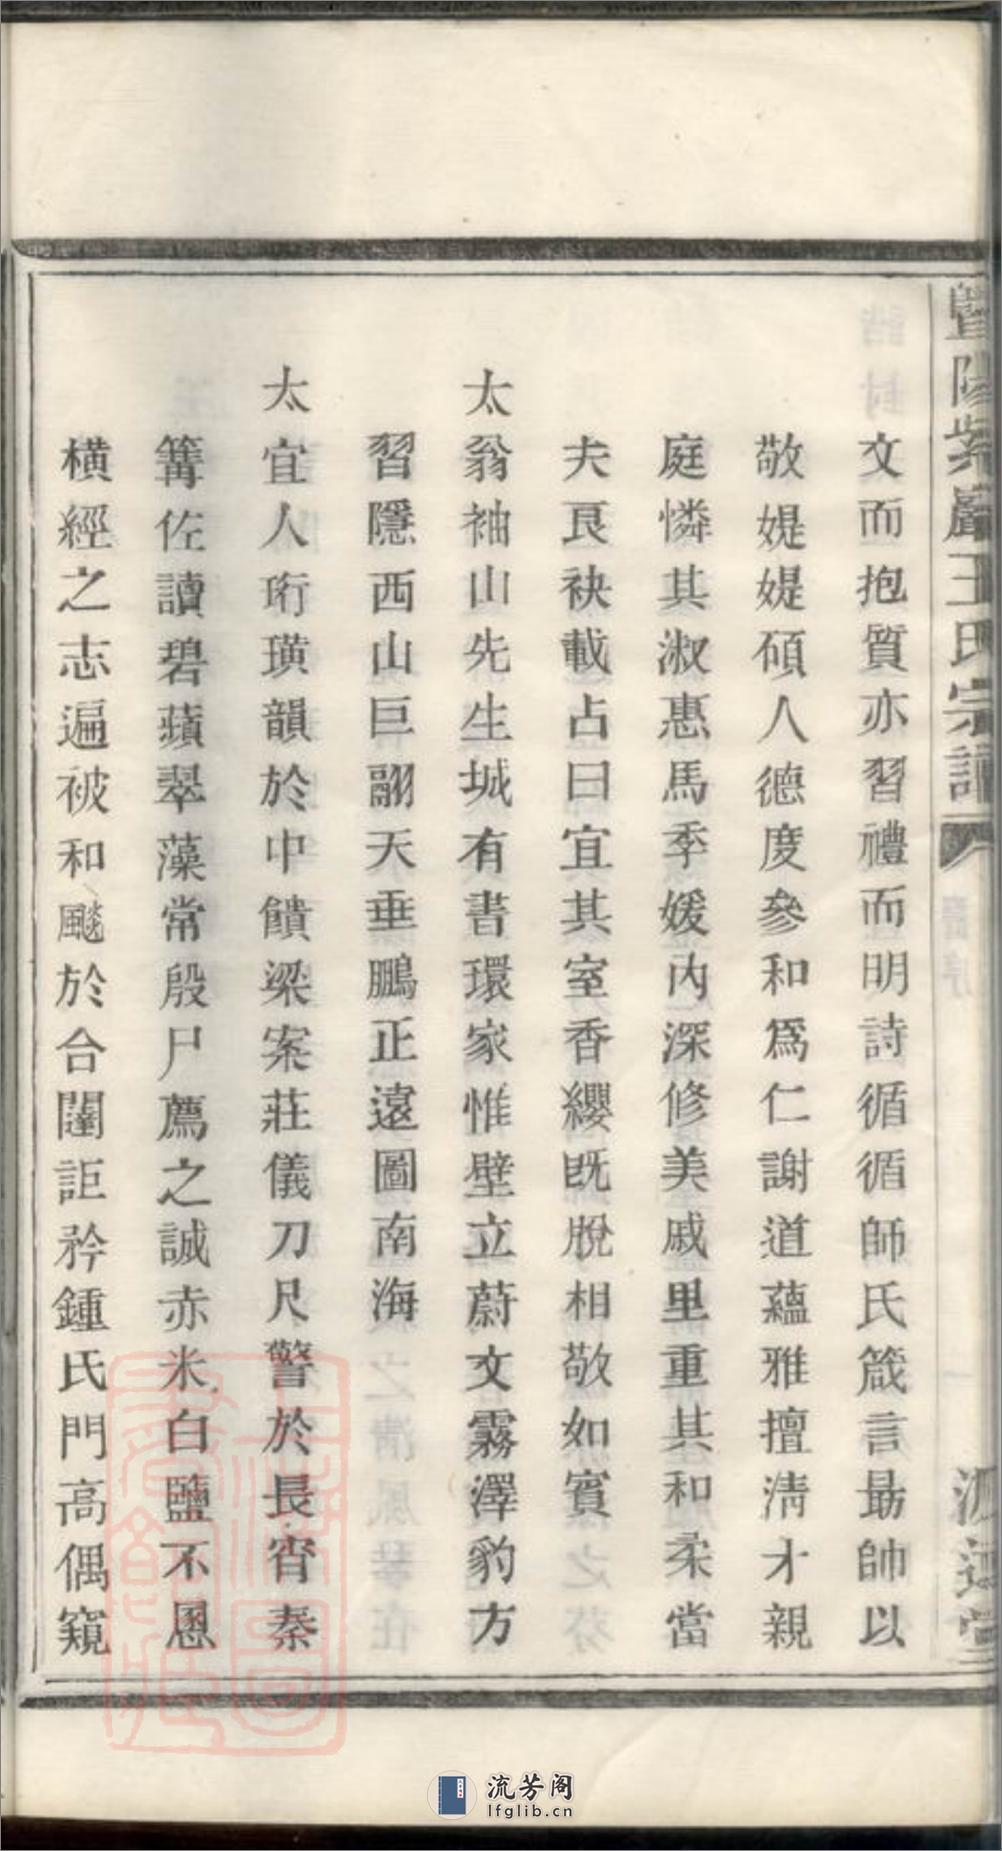 暨陽紫巖王氏宗譜
壽序
一
文而抱質亦習禮而明詩循循師氏箴言勗帥以
敬媞媞碩人德度參和爲仁謝道蘊雅擅淸才親
庭憐其淑惠馬季媛內深修美戚里重其和柔當
夫艮袂載占曰宜其室香纓旣脫相敬如賓
太翁袖山先生城有書環家惟壁立蔚文霧澤豹方
習隱西山巨翮天垂鵬正遠圖南海
太宜人珩璜韻於中饋梁案莊儀刀尺警於長宵秦
篝佐讀碧蘋翠藻常殷尸薦之誠赤米白鹽不慁
橫經之志遍被和颷於合闈詎矜鍾氏門高偶窺
流芳阁
lfglib.cn